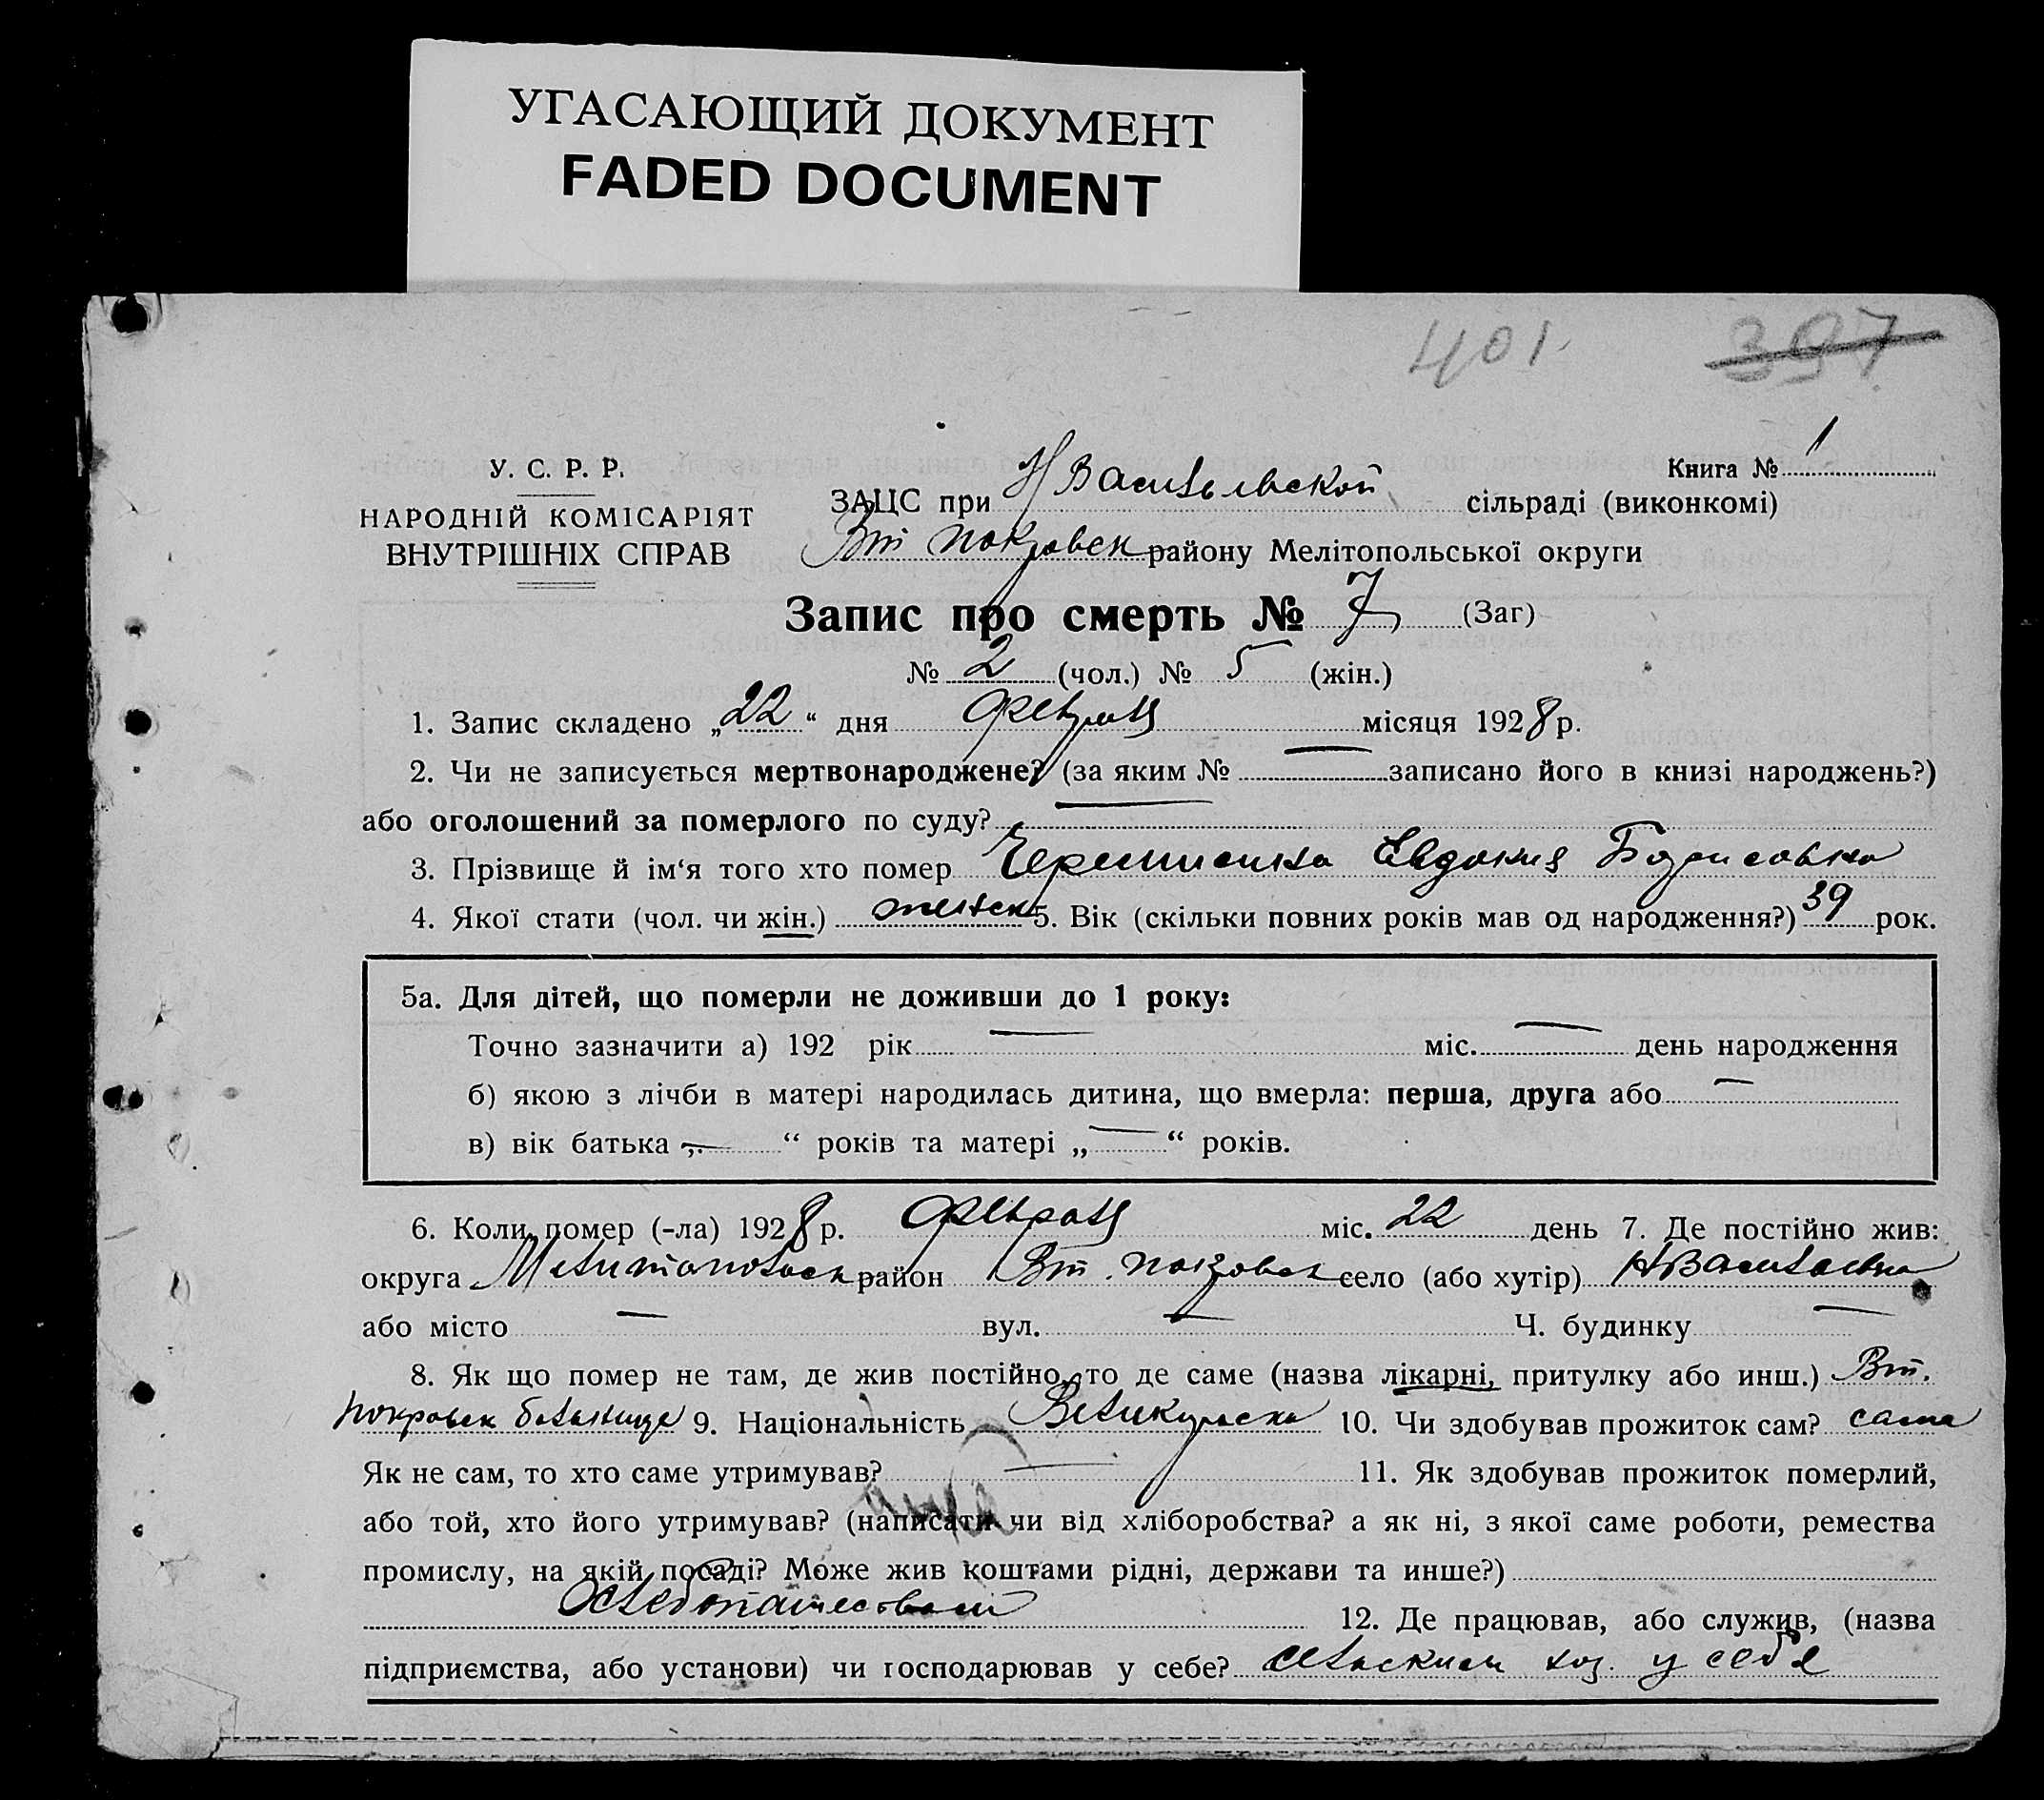 УГАСАЮЩИЙ ДОКУМЕНТ
FADED DOCUMENT
401. 397
У. С. Р. Р.
НАРОДНІЙ КОМІСАРІЯТ
ВНУТРІШНІХ СПРАВ
Книга № 1
ЗАЦС при Н Васильевской сільраді (виконкомі)
Вт Покровск району Мелітопольської округи
Запис про смерть № 7 (Заг)
№ 2 (чол.) № 5 (жін.)
1. Запис складено „22“ дня февраля місяця 1928 р.
2. Чи не записується мертвонароджене? (за яким № — записано його в книзі народжень?)
або оголошений за померлого по суду? —
3. Прізвище й ім‘я того хто помер Евдокия Борисовна
4. Якої стати (чол. чи жін.) женск 5. Вік (скільки повних років мав од народження?) 39 рок.
5а. Для дітей, що померли не доживши до 1 року:
Точно зазначити а) 192 рік — міс. — день народження
б) якою з лічби в матері народилась дитина, що вмерла: перша, друга або —
в) вік батька „—“ років та матері „—“ років.
6. Коли помер (-ла) 1928 р. февраля міс. 22 день 7. Де постійно жив:
округа Мелитопольск район Вт. Покровск село (або хутір) Н Васильевка
або місто — вул. — Ч. будинку —
8. Як що помер не там, де жив постійно, то де саме (назва лікарні, притулку або инш.) Вт.
Покровск больница 9. Національність Великорусска 10. Чи здобував прожиток сам? сама
Як не сам, то хто саме утримував? — 11. Як здобував прожиток померлий,
або той, хто його утримував? (написати чи від хліборобства? а як ні, з якої саме роботи, ремества
промислу, на якій посаді? Може жив коштами рідні, держави та инше?)
Хлебопашеством 12. Де працював, або служив, (назва
підприємства, або установи) чи господарював у себе? сельским хоз. у себя